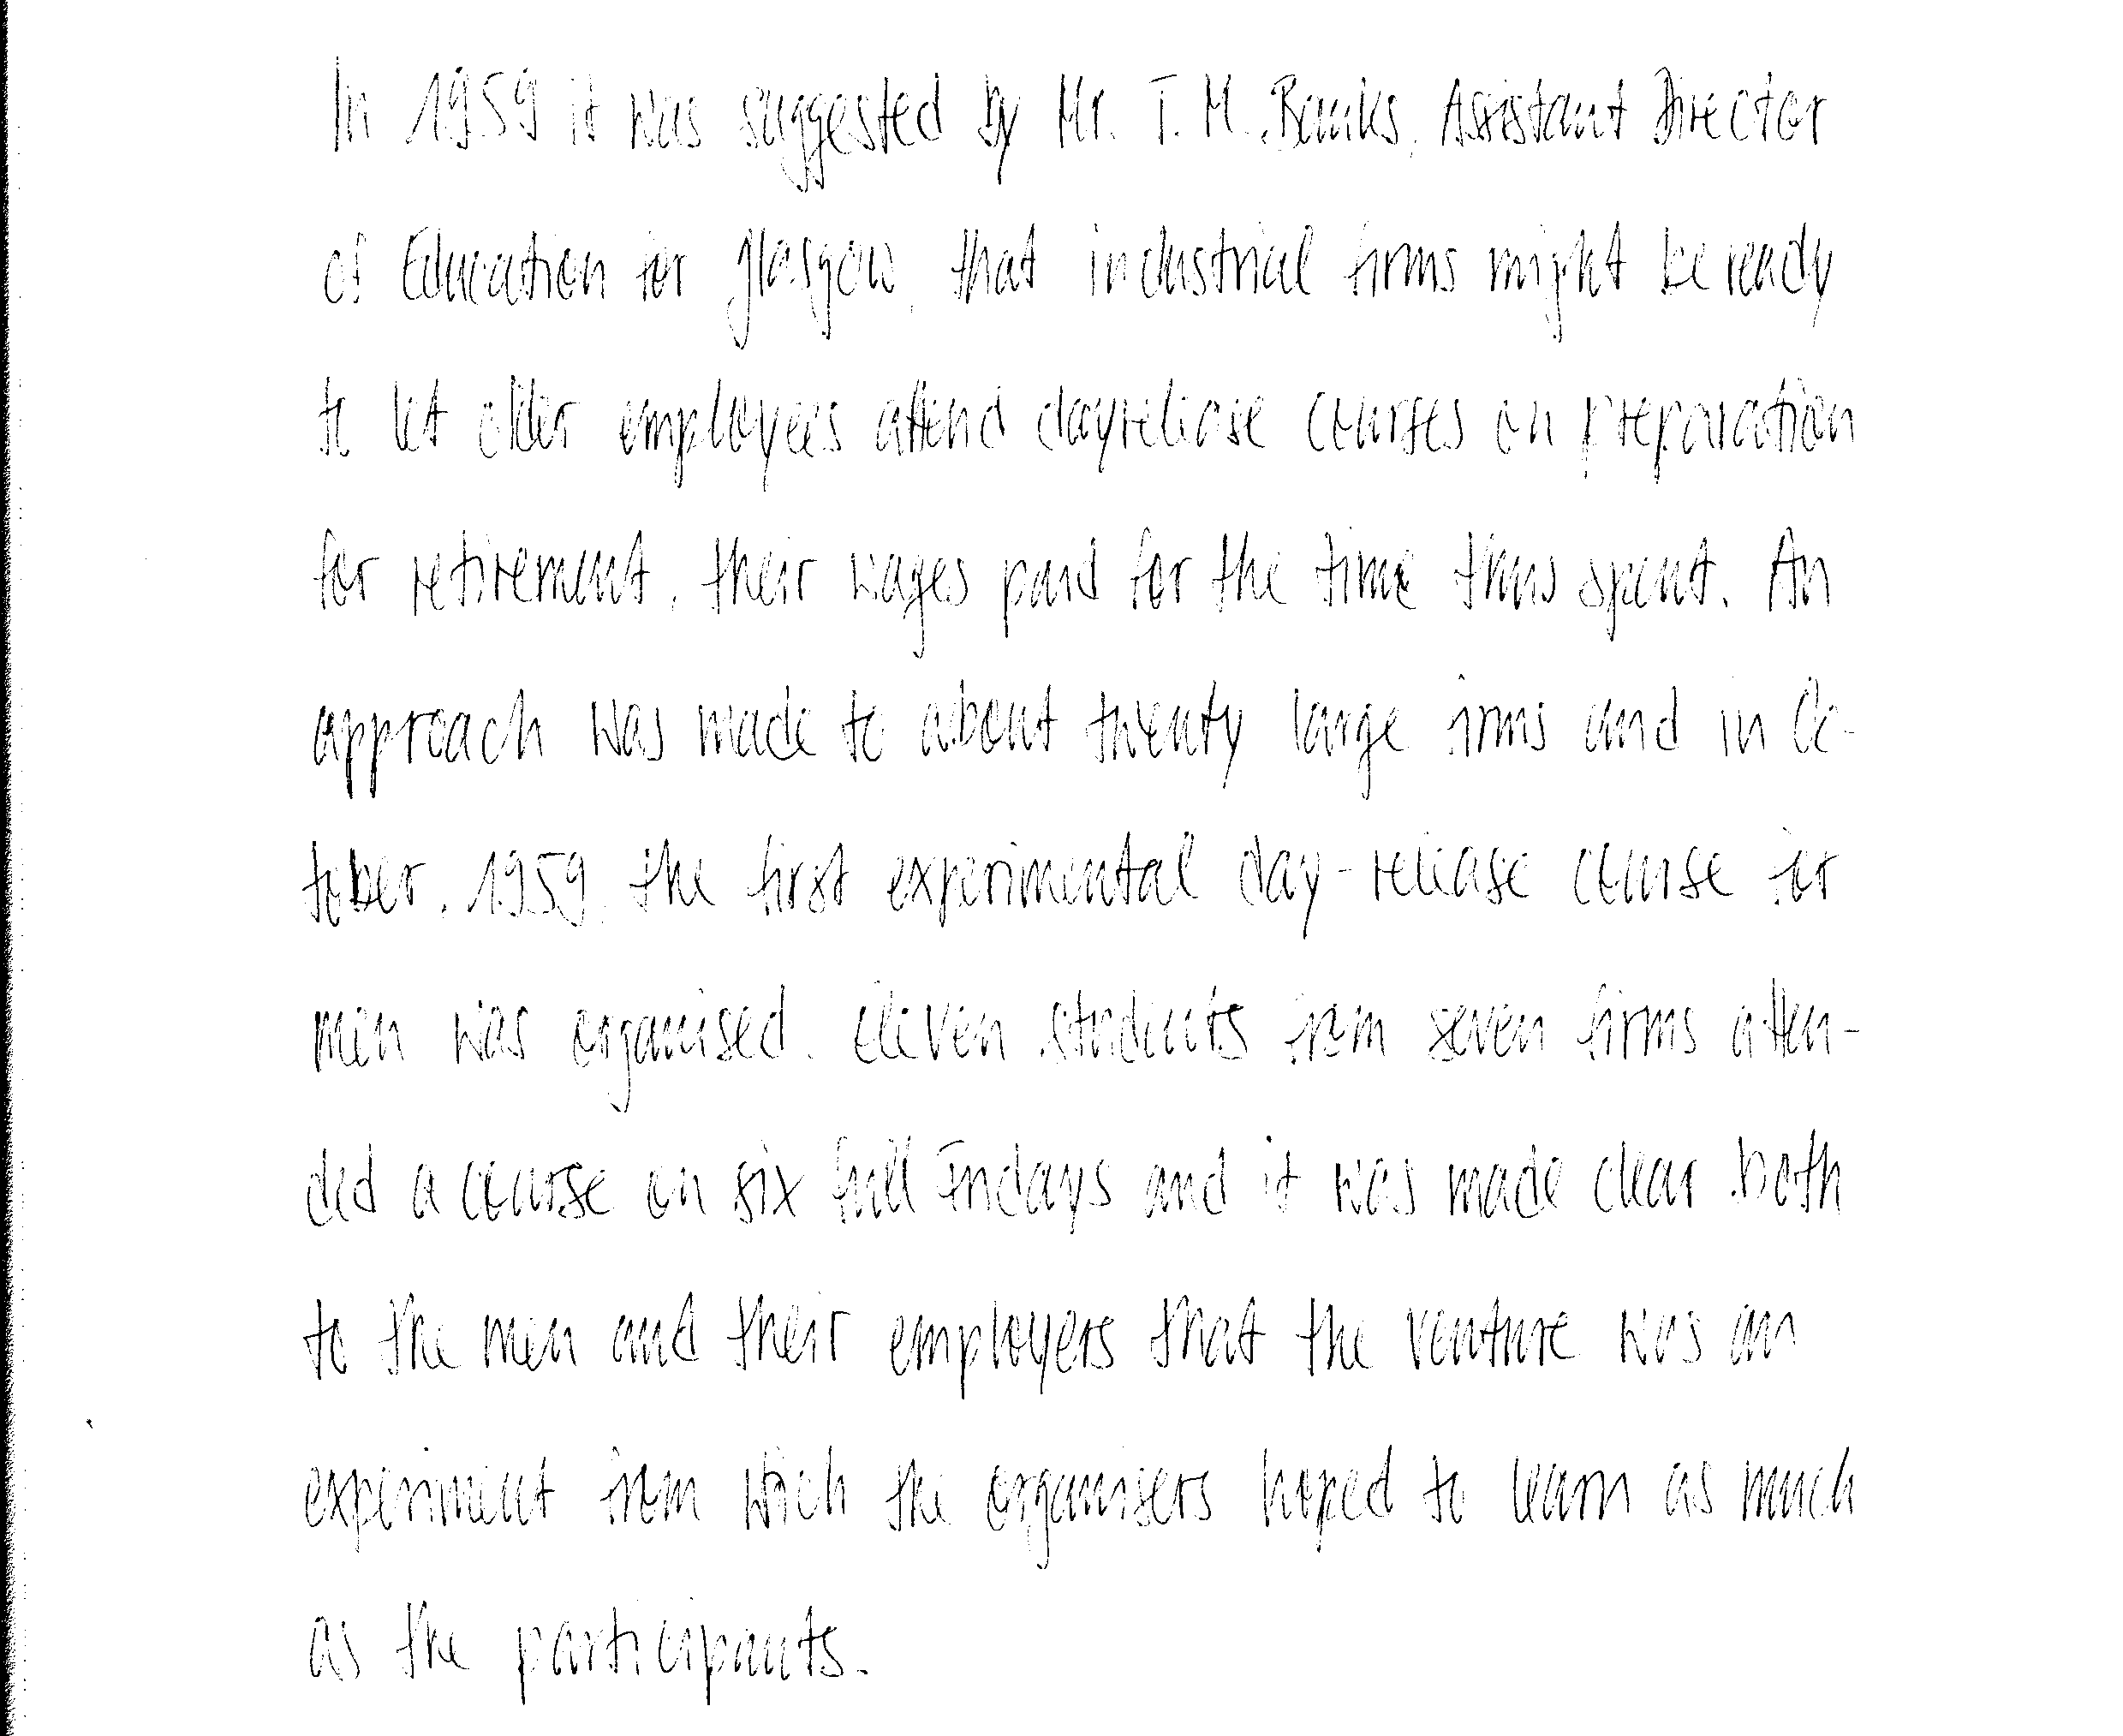 In 1959 it was suggested by Mr. T. M. Banks, Assistant Director
of Education for Glasgow, that industrial firms might be ready
to let older employees attend dayrelease courses on preparation
for retirement, their wages paid for the time thus spent. An
approach was made to about twenty large firms and in Oc-
tober, 1959, the first experimental day-release course for
men was organised. Eleven students from seven firms atten-
ded a course on six full Fridays and it was made clear both
to the men and their employers that the venture was an
experiment from which the organisers hoped to learn as much
as the participants.